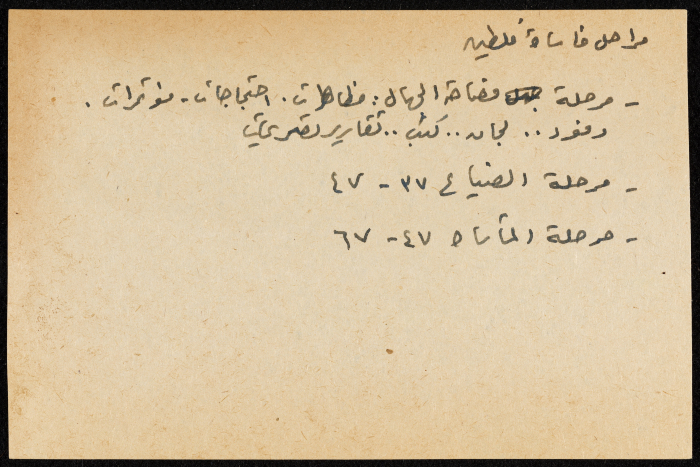 مراحل مأساة فلسطين
- مرحلة مضاحة الحبال: مظاهرات. احتجاجات - مؤتمرات.
وفود.. لجان.. كتب.. تقارير تصريحات
- مرحلة الضياع ٣٧ - ٤٧
- مرحلة المأساة ٤٧ - ٦٧